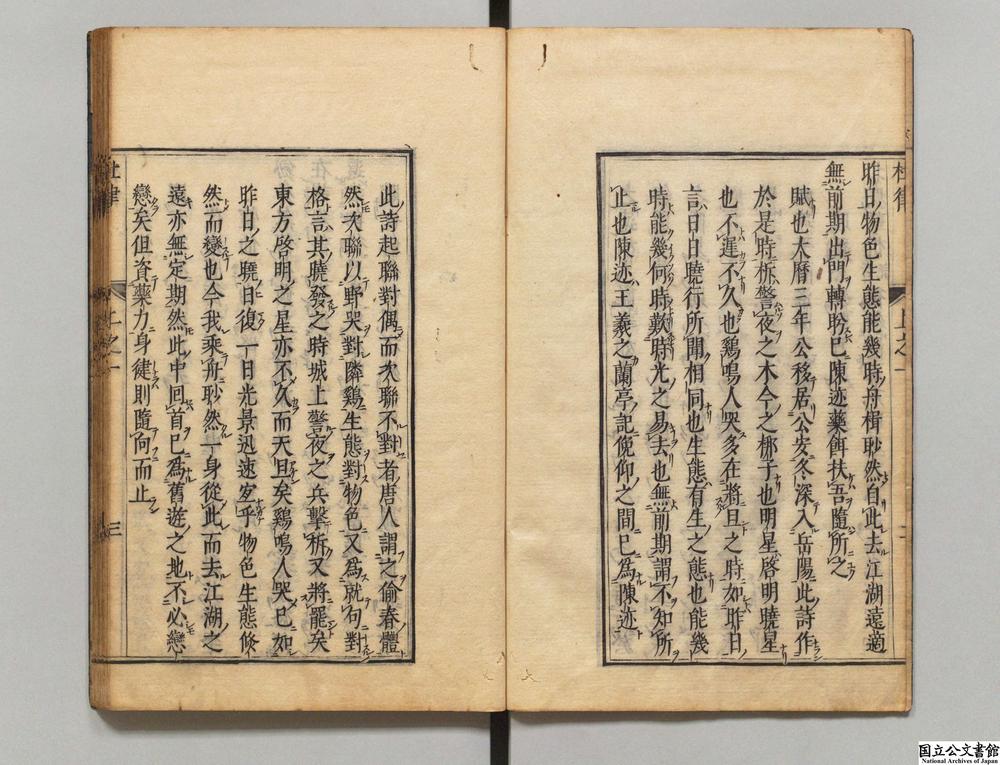 昨日物色生態能幾時舟楫眇然自此去江湖遠適
無前期出門轉眄已陳迹藥餌扶吾隨所之
賦也大曆三年公移居公安冬深入岳陽此詩作
於是時柝警夜之木今之梆子也明星啓明曉星
也不遲不久也鷄鳴人哭多在將旦之時如昨日
言日日曉行所聞相同也生態有生之態也能幾
時能幾何時歎時光之易去也無前期謂不知所
止也陳迹王羲之蘭亭記俛仰之間已為陳迹
杜律
上之一
二
此詩起聯對偶而次聯不對者唐人謂之偷春體
然次聯以野哭對隣鷄生態對物色又為就句對
格言其曉發之時城上警夜之兵擊柝又將罷矣
東方啓明之星亦不久而天旦矣鷄鳴人哭已如
昨日之曉日復一日光景迅速宜乎物色生態倏
然而變也今我乘舟眇然一身從此而去江湖之
遠亦無定期然此中回首已為舊遊之地不必戀
戀矣但資藥力身健則隨向而止
杜律
上之一
三
国立公文書館
National Archives of Japan